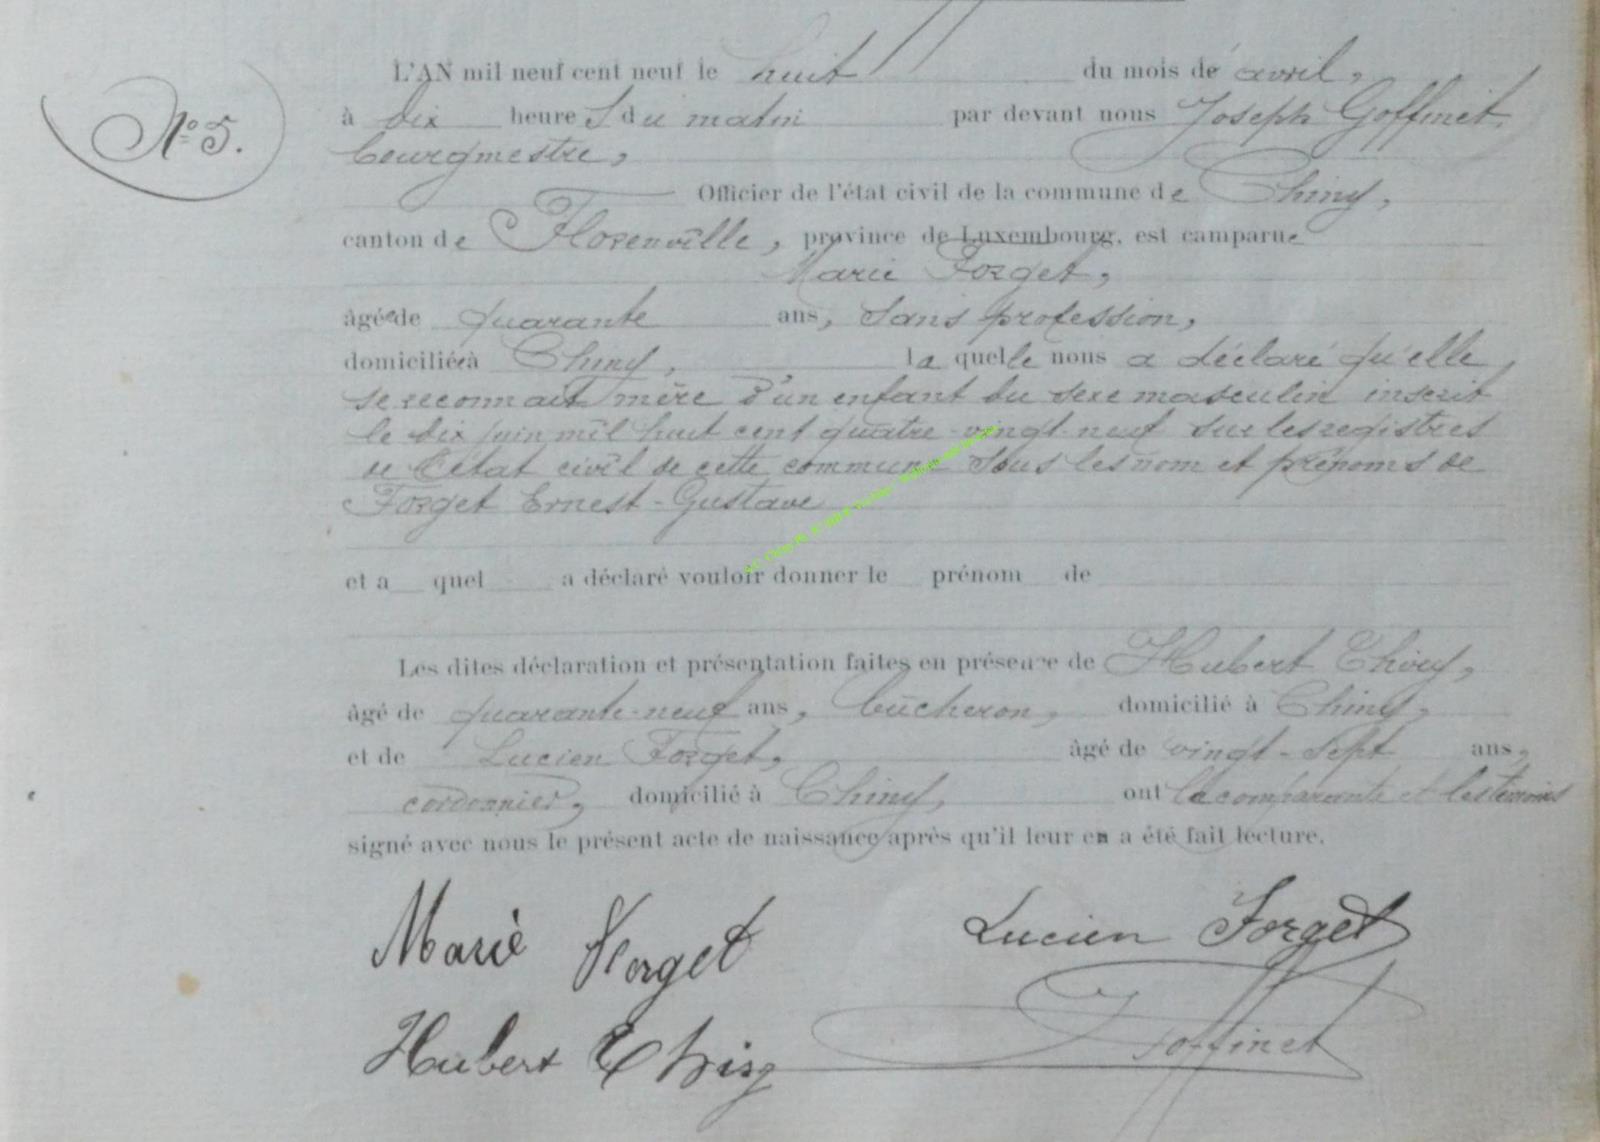 L'AN mil neuf cent neuf le huit du mois de avril,
N° 5.
à dix heures du matin par devant nous Joseph Goffinet,
bourgmestre,
Officier de l'état civil de la commune de Chiny,
canton de Florenville, province de Luxembourg, est comparue
Marie Forget,
âgée de quarante ans, sans profession,
domiciliée à Chiny, laquelle nous a déclaré qu'elle
se reconnait mère d'un enfant du sexe masculin inscrit
le dix juin mil huit cent quatre-vingt-neuf sur les registres
de l'état civil de cette commune sous les nom et prénoms de
Forget Ernest-Gustave
et a quel a déclaré vouloir donner le prénom de
Les dites déclaration et présentation faites en présence de Hubert Thiry,
âgé de quarante-neuf ans, bûcheron, domicilié à Chiny,
et de Lucien Forget, âgé de vingt-sept ans,
cordonnier, domicilié à Chiny, ont la comparante et les témoins
signé avec nous le présent acte de naissance après qu'il leur en a été fait lecture.
Marie Forget Lucien Forget
Hubert Thiry J Goffinet